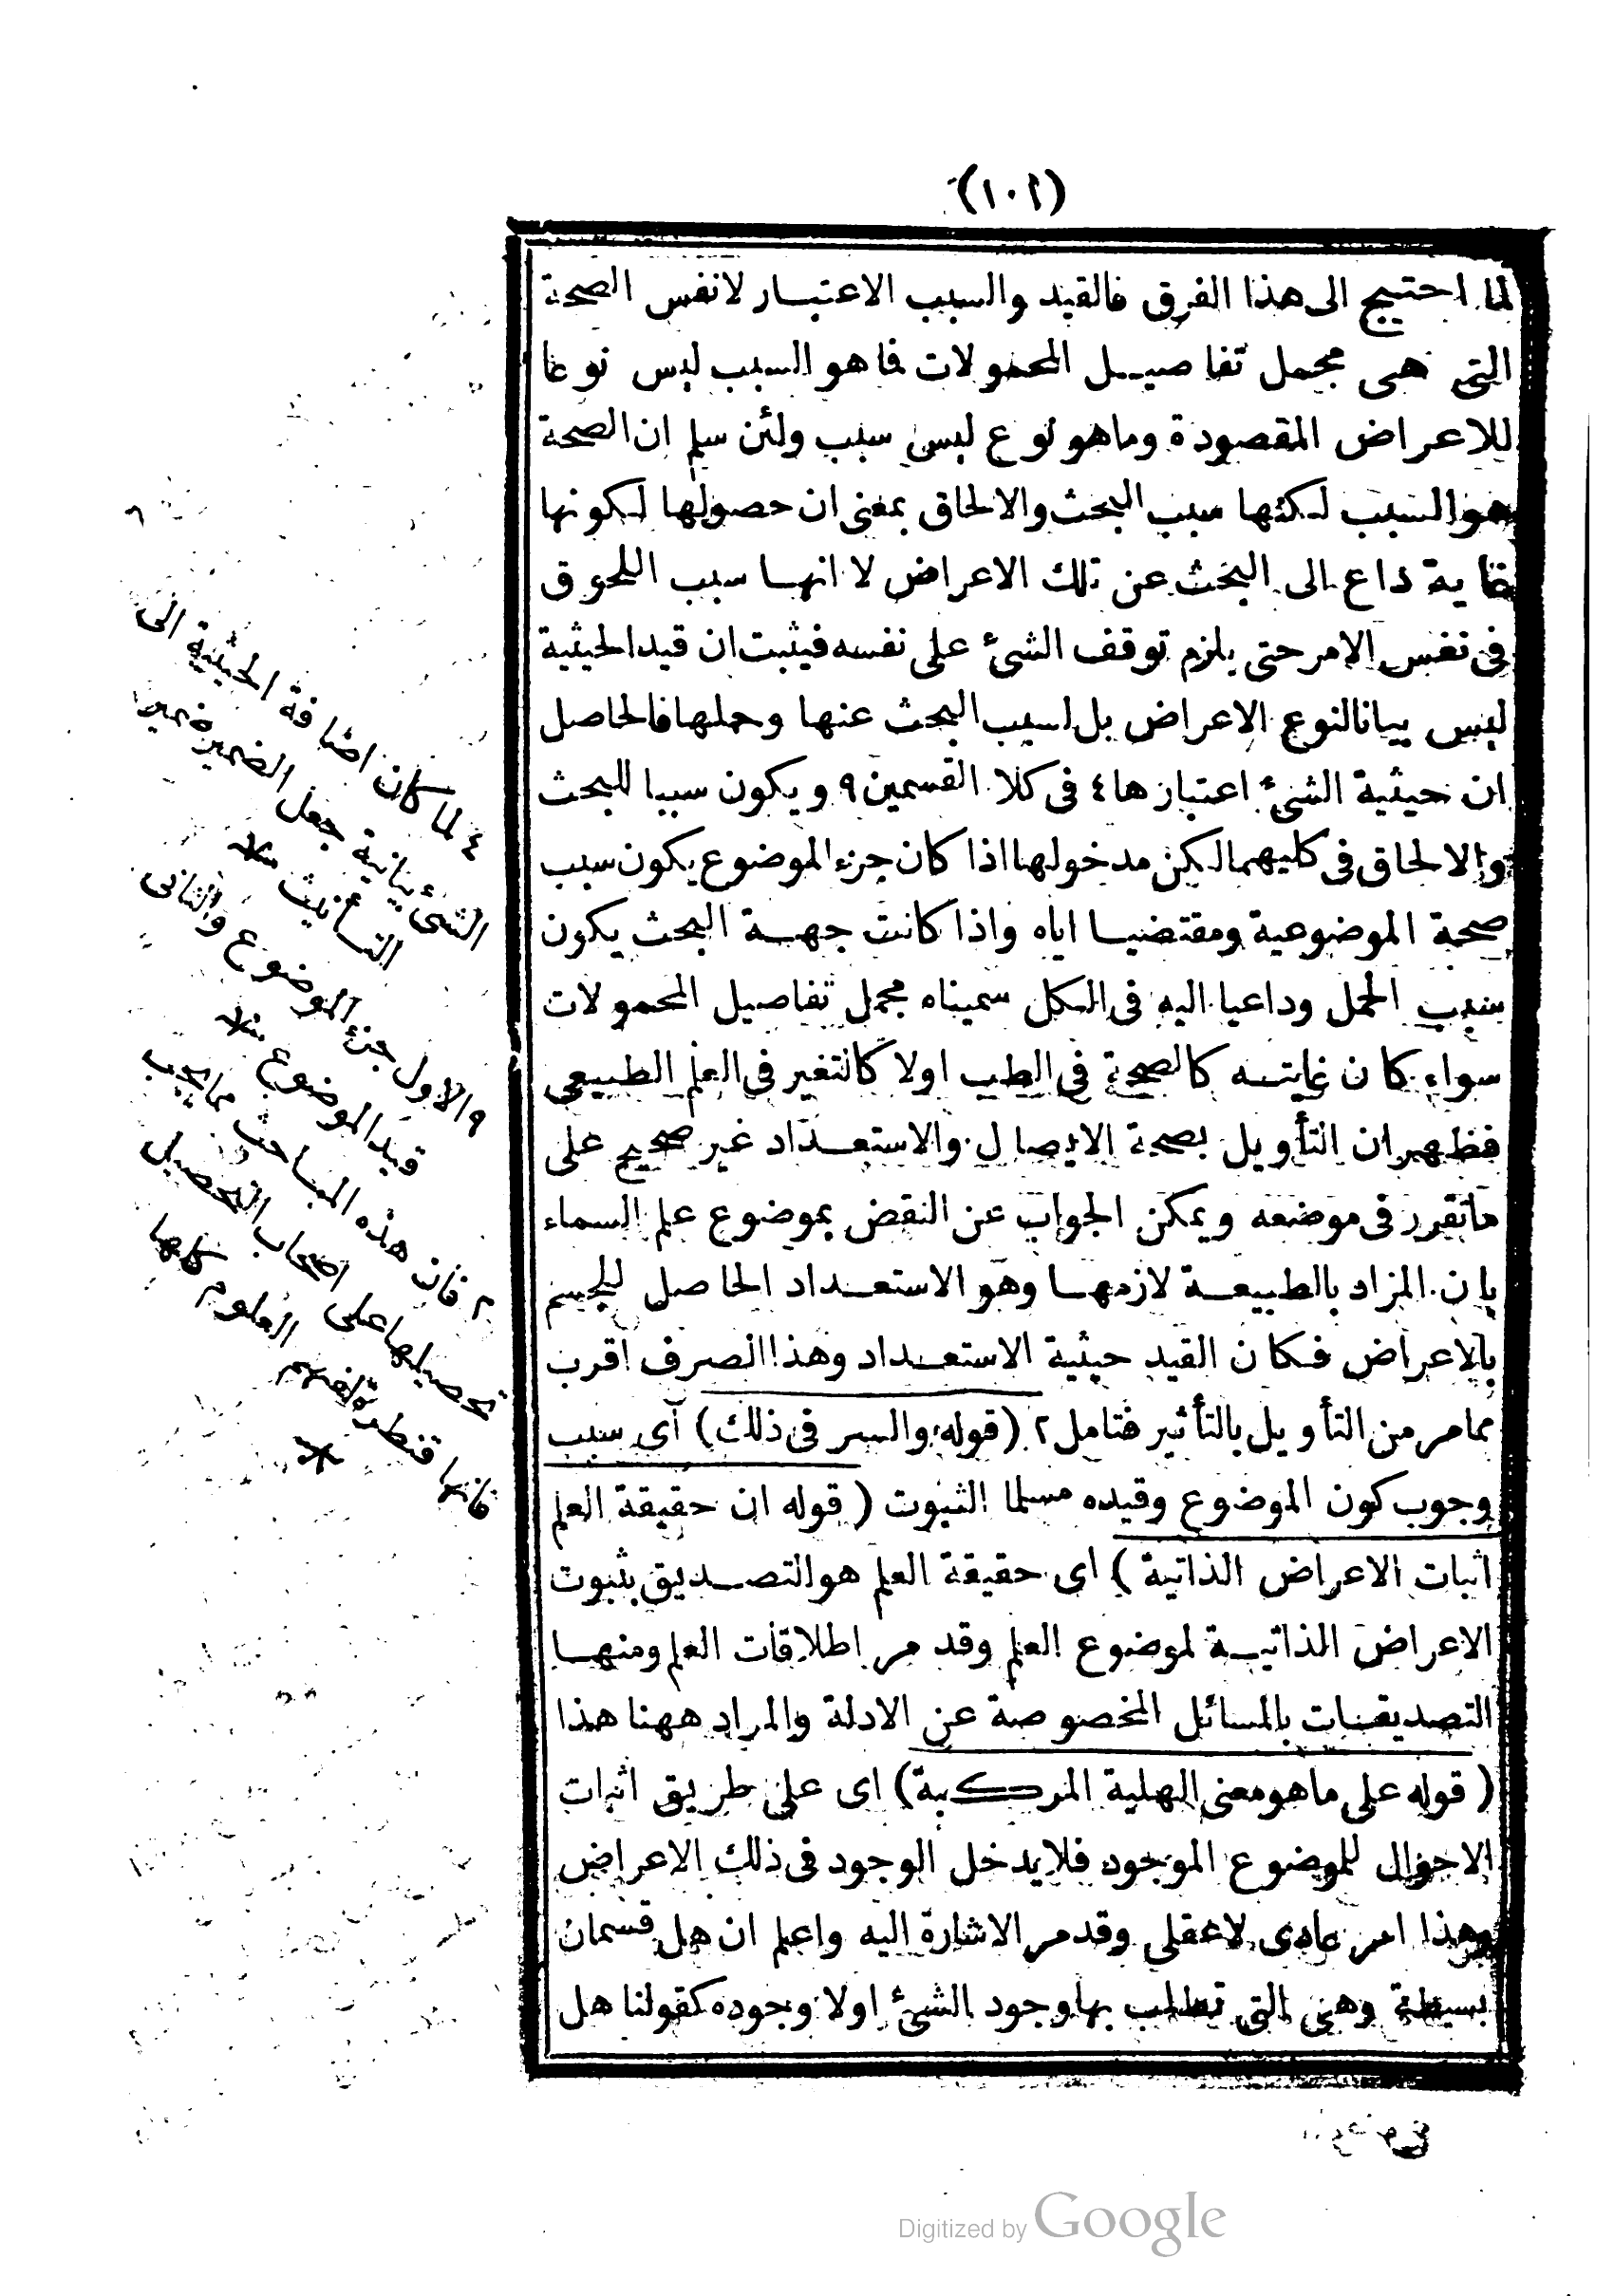 (١٠١)
لما احتيج الى هذا الفرق فالقيد والسبب الاعتبار لا نفس الصحة
التى هى مجمل تفاصيل المحمولات فاهو السبب ليس نوعا
للاعراض المقصودة وماهو نوع ليس سبب ولئن سلم ان الصحة
هو السبب لكنها سبب البحث والالحاق بمعنى ان حصولها لكونها
غاية داع الى البحث عن تلك الاعراض لا انها سبب اللحوق
فى نفس الامر حتى يلزم توقف الشئ على نفسه فيثبت ان قيد الحيثية
ليس بيانا لنوع الاعراض بل لسبب البحث عنها وحملها فالحاصل
ان حيثية الشئ اعتبارها ٤ فى كلا القسمين ٩ ويكون سببا للبحث
والالحاق فى كليهما لكن مدخولها اذا كان جزء الموضوع يكون سبب
صحة الموضوعية ومقتضيا اياه واذا كانت جهة البحث يكون
سبب الحمل وداعيا اليه فى الكل سميناه مجمل تفاصيل المحمولات
سواء كان غايته كالصحة فى الطب اولا كالتغير فى العلم الطبيعى
فظهر ان التأويل بصحة الايصال والاستعداد غير صحيح على
ماتقرر فى موضعه ويمكن الجواب عن النقض بموضوع علم السماء
بان المراد بالطبيعة لازمها وهو الاستعداد الحاصل للجسم
بالاعراض فكان القيد حيثية الاستعداد وهذا الصرف اقرب
مما مر من التأويل بالتأثير فتامل ٢ (قوله والسر فى ذلك) أى سبب
وجوب كون الموضوع وقيده مسلما الثبوت ( قوله ان حقيقة العلم
اثبات الاعراض الذاتية ) اى حقيقة العلم هو التصديق بثبوت
الاعراض الذاتية لموضوع العلم وقد مر اطلاقات العلم ومنها
التصديقات بالمسائل المخصوصة عن الادلة والمراد ههنا هذا
( قوله على ماهو معنى الهلية المركبة) اى على طريق اثبات
الاحوال للموضوع الموجود فلا يدخل الوجود فى ذلك الاعراض
وهذا امر عادى لاعقلى وقد مر الاشارة اليه واعلم ان هل قسمان
بسيطة وهى التى تطلب بها وجود الشئ اولا وجوده كقولنا هل
٤ لما كان اضافة الحيثية الى
الشئ بيانية جعل الضمير ضمير
التأنيث منه
٩ والاول جزء الموضوع والثانى
قيد الموضوع منه
٢ فان هذه المباحث مما يجب
تحصيلها على اصحاب التحصيل
فانها قنطرة لفهم العلوم كلها
Digitized by Google